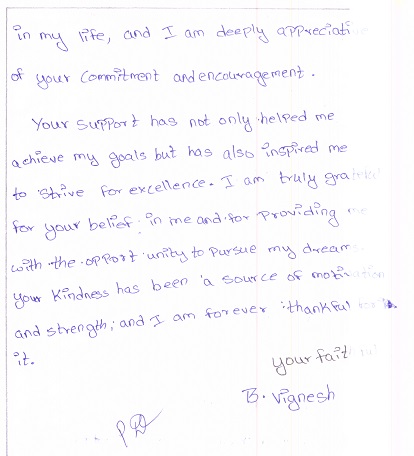 in my life, and I am deeply appreciati
of your commitment and encouragement.
Your support has not only helped me
achieve my goals but has also inspired me
to strive for excellence. I am truly grateful
for your belief in me and for providing me
with the opportunity to pursue my dream
your kindness has been a source of motivation
and strength, and I am forever thankful for
it.
your fait
B. Vignesh